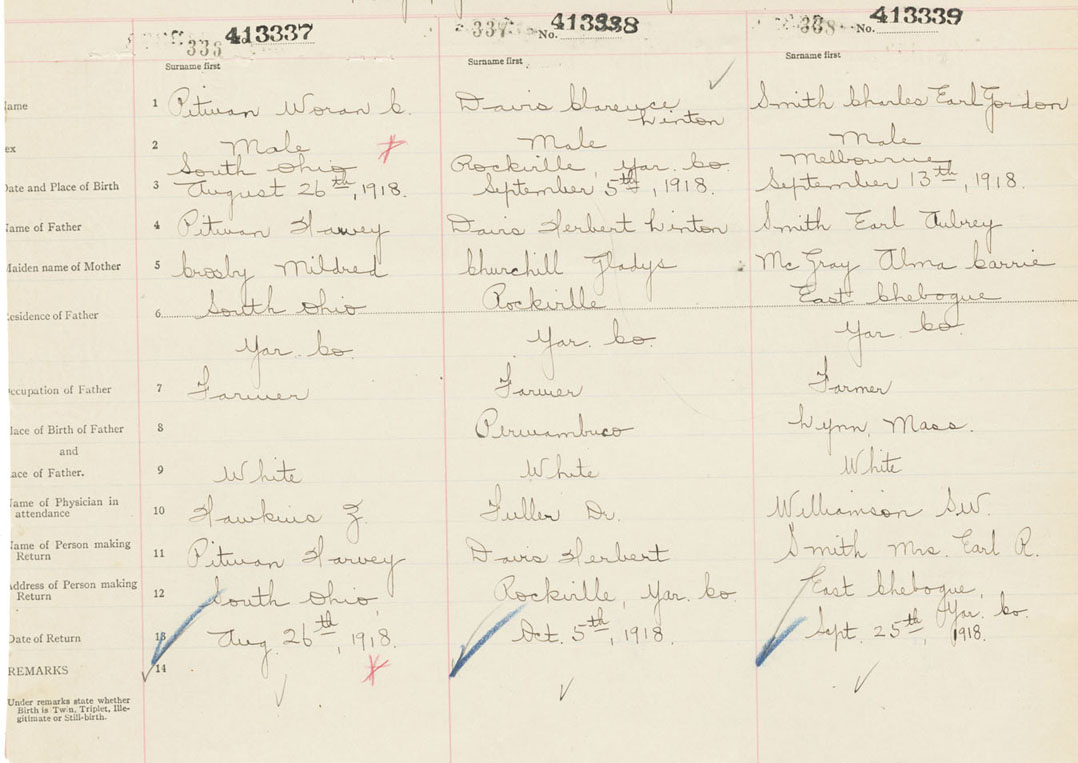 413337 413338 413339
No. No.
Surname first Surname first Surname first
ame 1 Pitman Woran C. Davis Clarence Linton Smith Charles Earl Gordon
ex 2 Male Male Male
South Ohio Rockville, Yar. Co. Melbourne
Date and Place of Birth 3 August 26th, 1918. September 5th, 1918. September 13th, 1918.
ame of Father 4 Pitman Harvey Davis Herbert Linton Smith Earl Aubrey
Maiden name of Mother 5 Crosby Mildred Churchill Gladys McGray Alma Carrie
esidence of Father 6 South Ohio Rockville East Chebogue
Yar. Co. Yar. Co. Yar. Co.
ccupation of Father 7 Farmer Farmer Farmer
lace of Birth of Father 8 Pernambuco Lynn, Mass.
and
ace of Father. 9 White White White
Name of Physician in attendance 10 Hawkins Z. Fuller Dr. Williamson S.W.
Name of Person making Return 11 Pitman Harvey Davis Herbert Smith Mrs. Earl R.
Address of Person making Return 12 South Ohio, Rockville, Yar. Co. East Chebogue, Yar. Co.
Date of Return 13 Aug. 26th, 1918. Oct. 5th, 1918. Sept. 25th, 1918.
REMARKS 14
Under remarks state whether
Birth is Twin, Triplet, Ille-
gitimate or Still-birth.